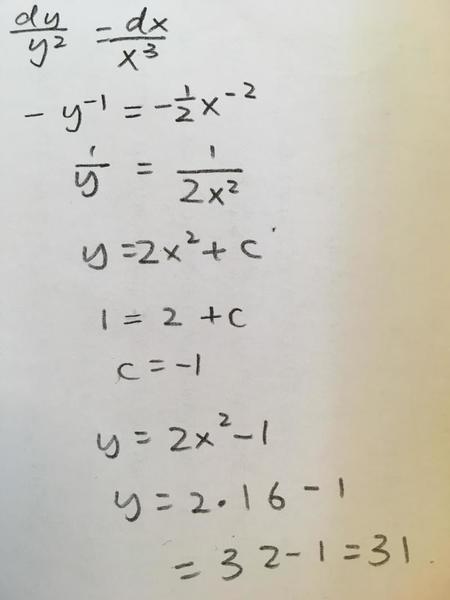 dy/y² = dx/x³
- y⁻¹ = -½x⁻²
1/y = 1/2x²
y = 2x² + c
1 = 2 + c
c = -1
y = 2x² - 1
y = 2·16 - 1
= 32 - 1 = 31